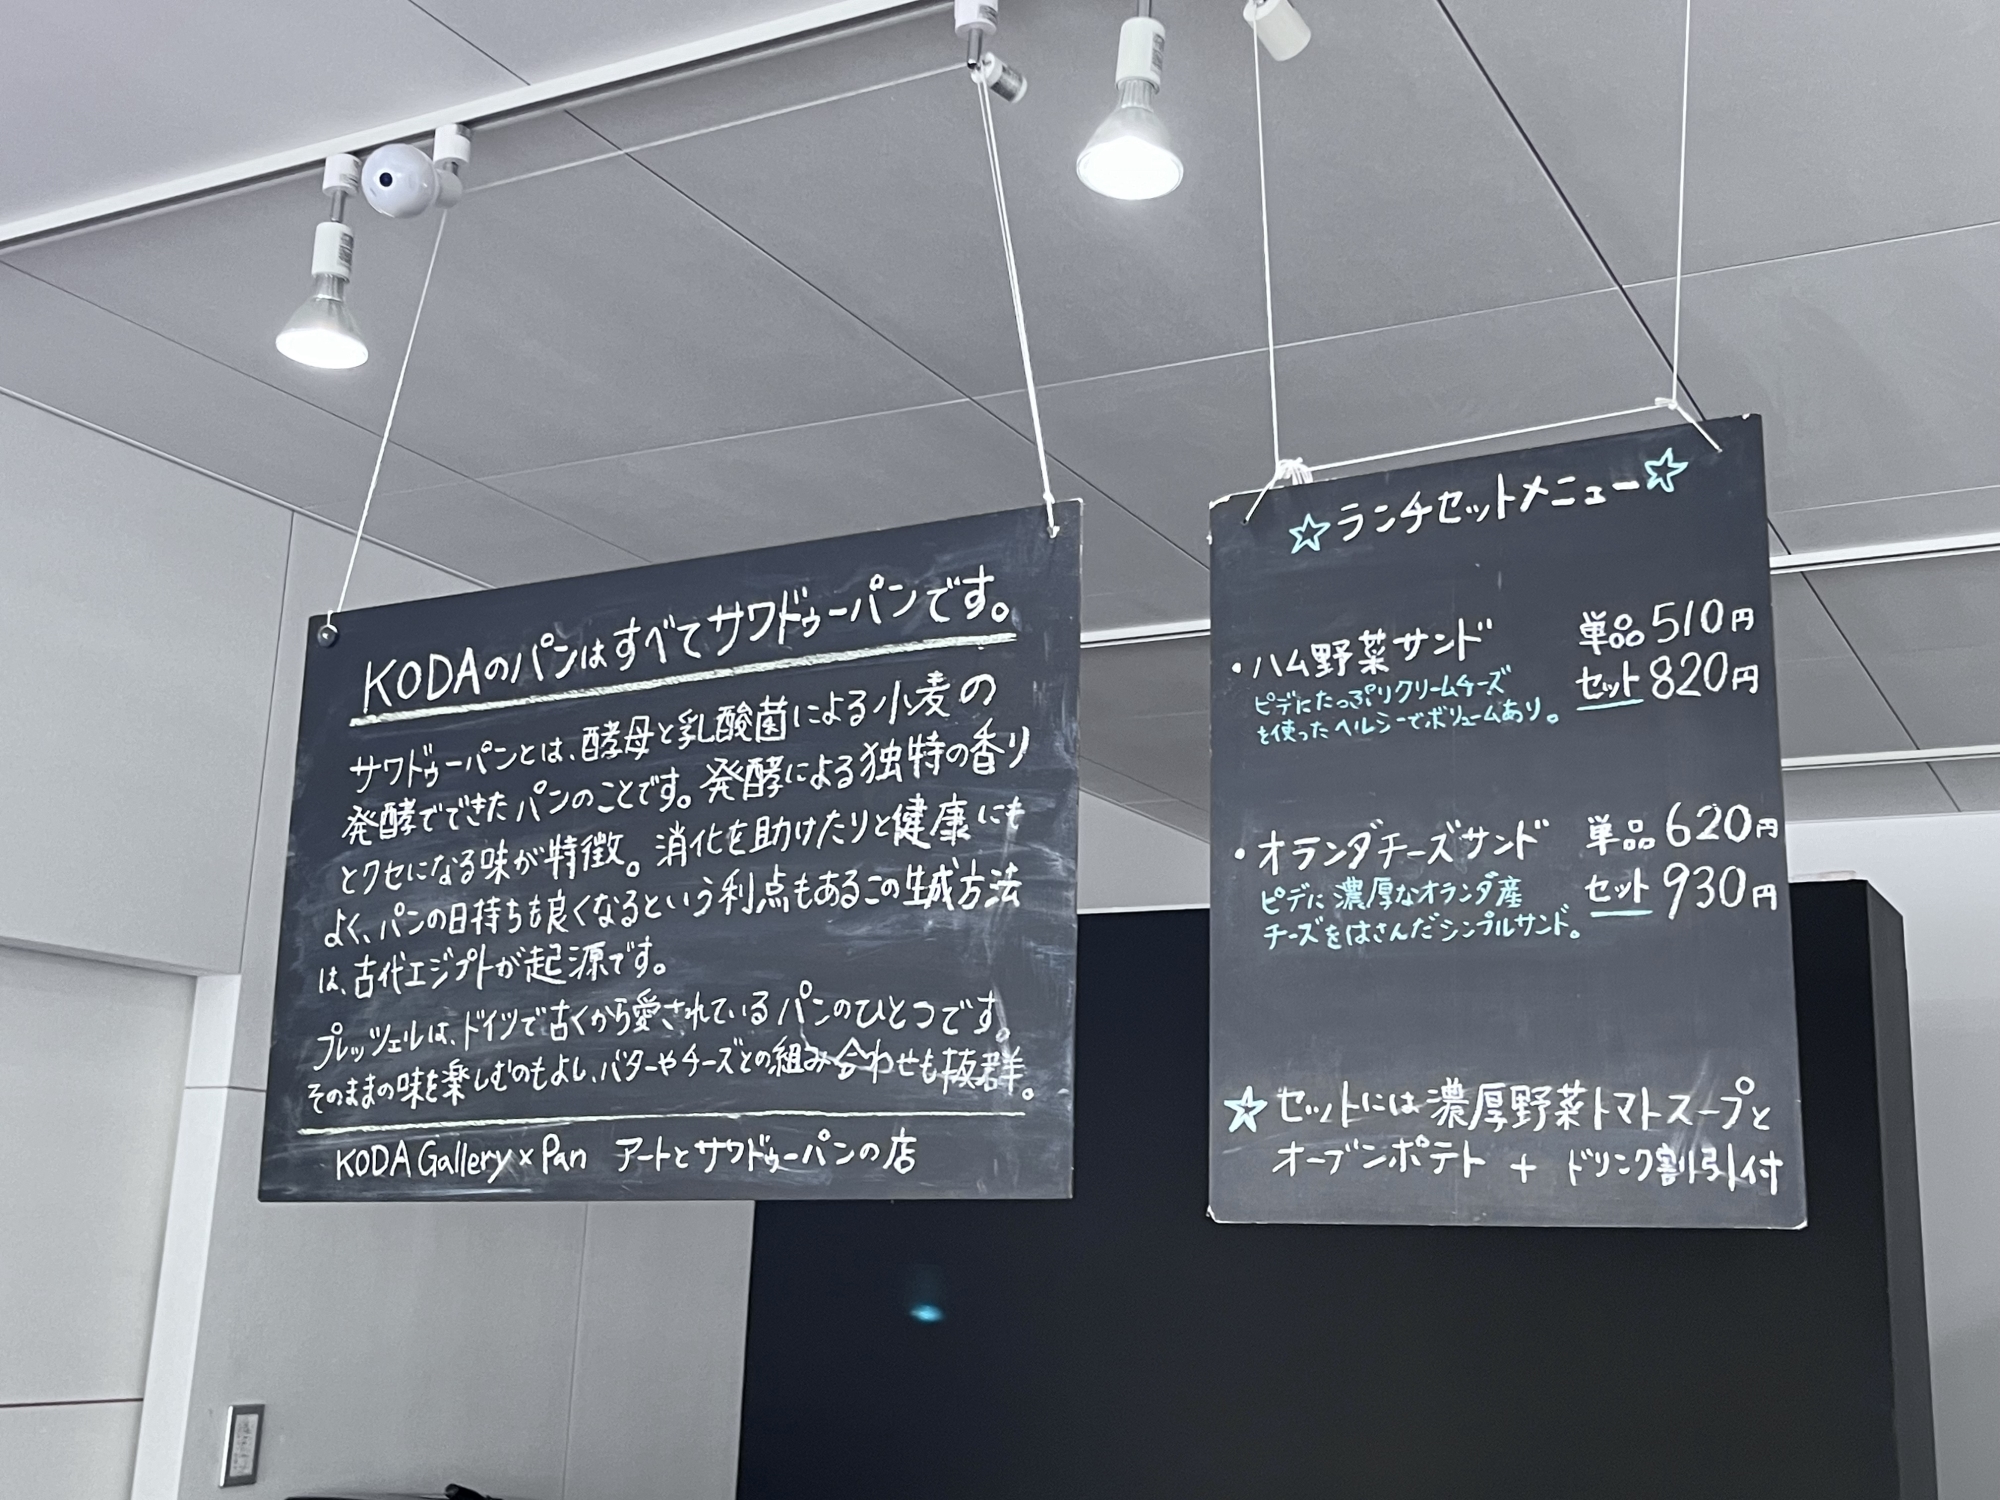 KODAのパンはすべてサワドゥーパンです。
サワドゥーパンとは、酵母と乳酸菌による小麦の
発酵でできたパンのことです。発酵による独特の香り
とクセになる味が特徴。消化を助けたりと健康にも
よく、パンの日持ちも良くなるという利点もあるこの生成方法
は、古代エジプトが起源です。
プレッツェルは、ドイツで古くから愛されているパンのひとつです。
そのままの味を楽しむのもよし、バターやチーズとの組み合わせも抜群。
KODA Gallery × Pan アートとサワドゥーパンの店
☆ランチセットメニュー☆
・ハム野菜サンド 単品510円
ピデにたっぷりクリームチーズ セット820円
を使ったヘルシーでボリュームあり。
・オランダチーズサンド 単品620円
ピデに濃厚なオランダ産 セット930円
チーズをはさんだシンプルサンド。
☆セットには濃厚野菜トマトスープと
オーブンポテト + ドリンク割引付